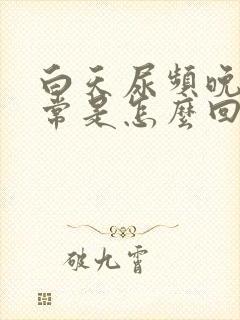 白天尿頻晚
常是怎麼回
破九霄